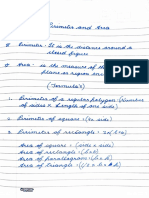 Perimeter and Area
Perimeter - It is the distance around a
closed figure
Area - is the measure of the
plane or region
(Formula's)
1. Perimeter of a regular polygon = (number
of sides × length of one side)
2. Perimeter of square = (4 × side)
3. Perimeter of rectangle = 2×(l+b)
Area of square = (side × side)
Area of rectangle = (l×b)
Area of parallelogram = (b×h)
Area of Triangle =